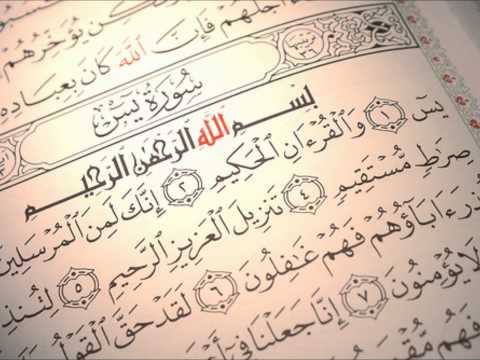 يُؤَخِّرُهُمْ
أَجَلُهُمْ فَإِنَّ ٱللَّهَ كَانَ بِعِبَادِهِ
سُورَةُ يسٓ
بِسْمِ ٱللَّهِ ٱلرَّحْمَٰنِ ٱلرَّحِيمِ
يسٓ ١ وَٱلْقُرْءَانِ ٱلْحَكِيمِ ٢ إِنَّكَ لَمِنَ ٱلْمُرْسَلِينَ
صِرَٰطٍ مُّسْتَقِيمٍ ٤ تَنزِيلَ ٱلْعَزِيزِ ٱلرَّحِيمِ ٥ لِتُنذِ
نذِرَ ءَابَآؤُهُمْ فَهُمْ غَٰفِلُونَ ٦ لَقَدْ حَقَّ ٱلْقَوْلُ
لَا يُؤْمِنُونَ ٧ إِنَّا جَعَلْنَا فِىٓ أَ
فَهُم مُّقْمَ